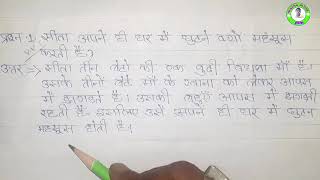 प्रश्न 1. सीता अपने ही घर में घुटन क्यों महसूस
करती है?
उत्तर ⇒ सीता तीन बेटों की एक बुढ़ी विधवा माँ है।
उसके तीनों बेटे माँ के खाना को लेकर आपस
में झगड़ते है। उसकी बहुएँ आपस में झगड़ती
रहती है। इसलिए उसे अपने ही घर में घुटन
महसूस होती है।